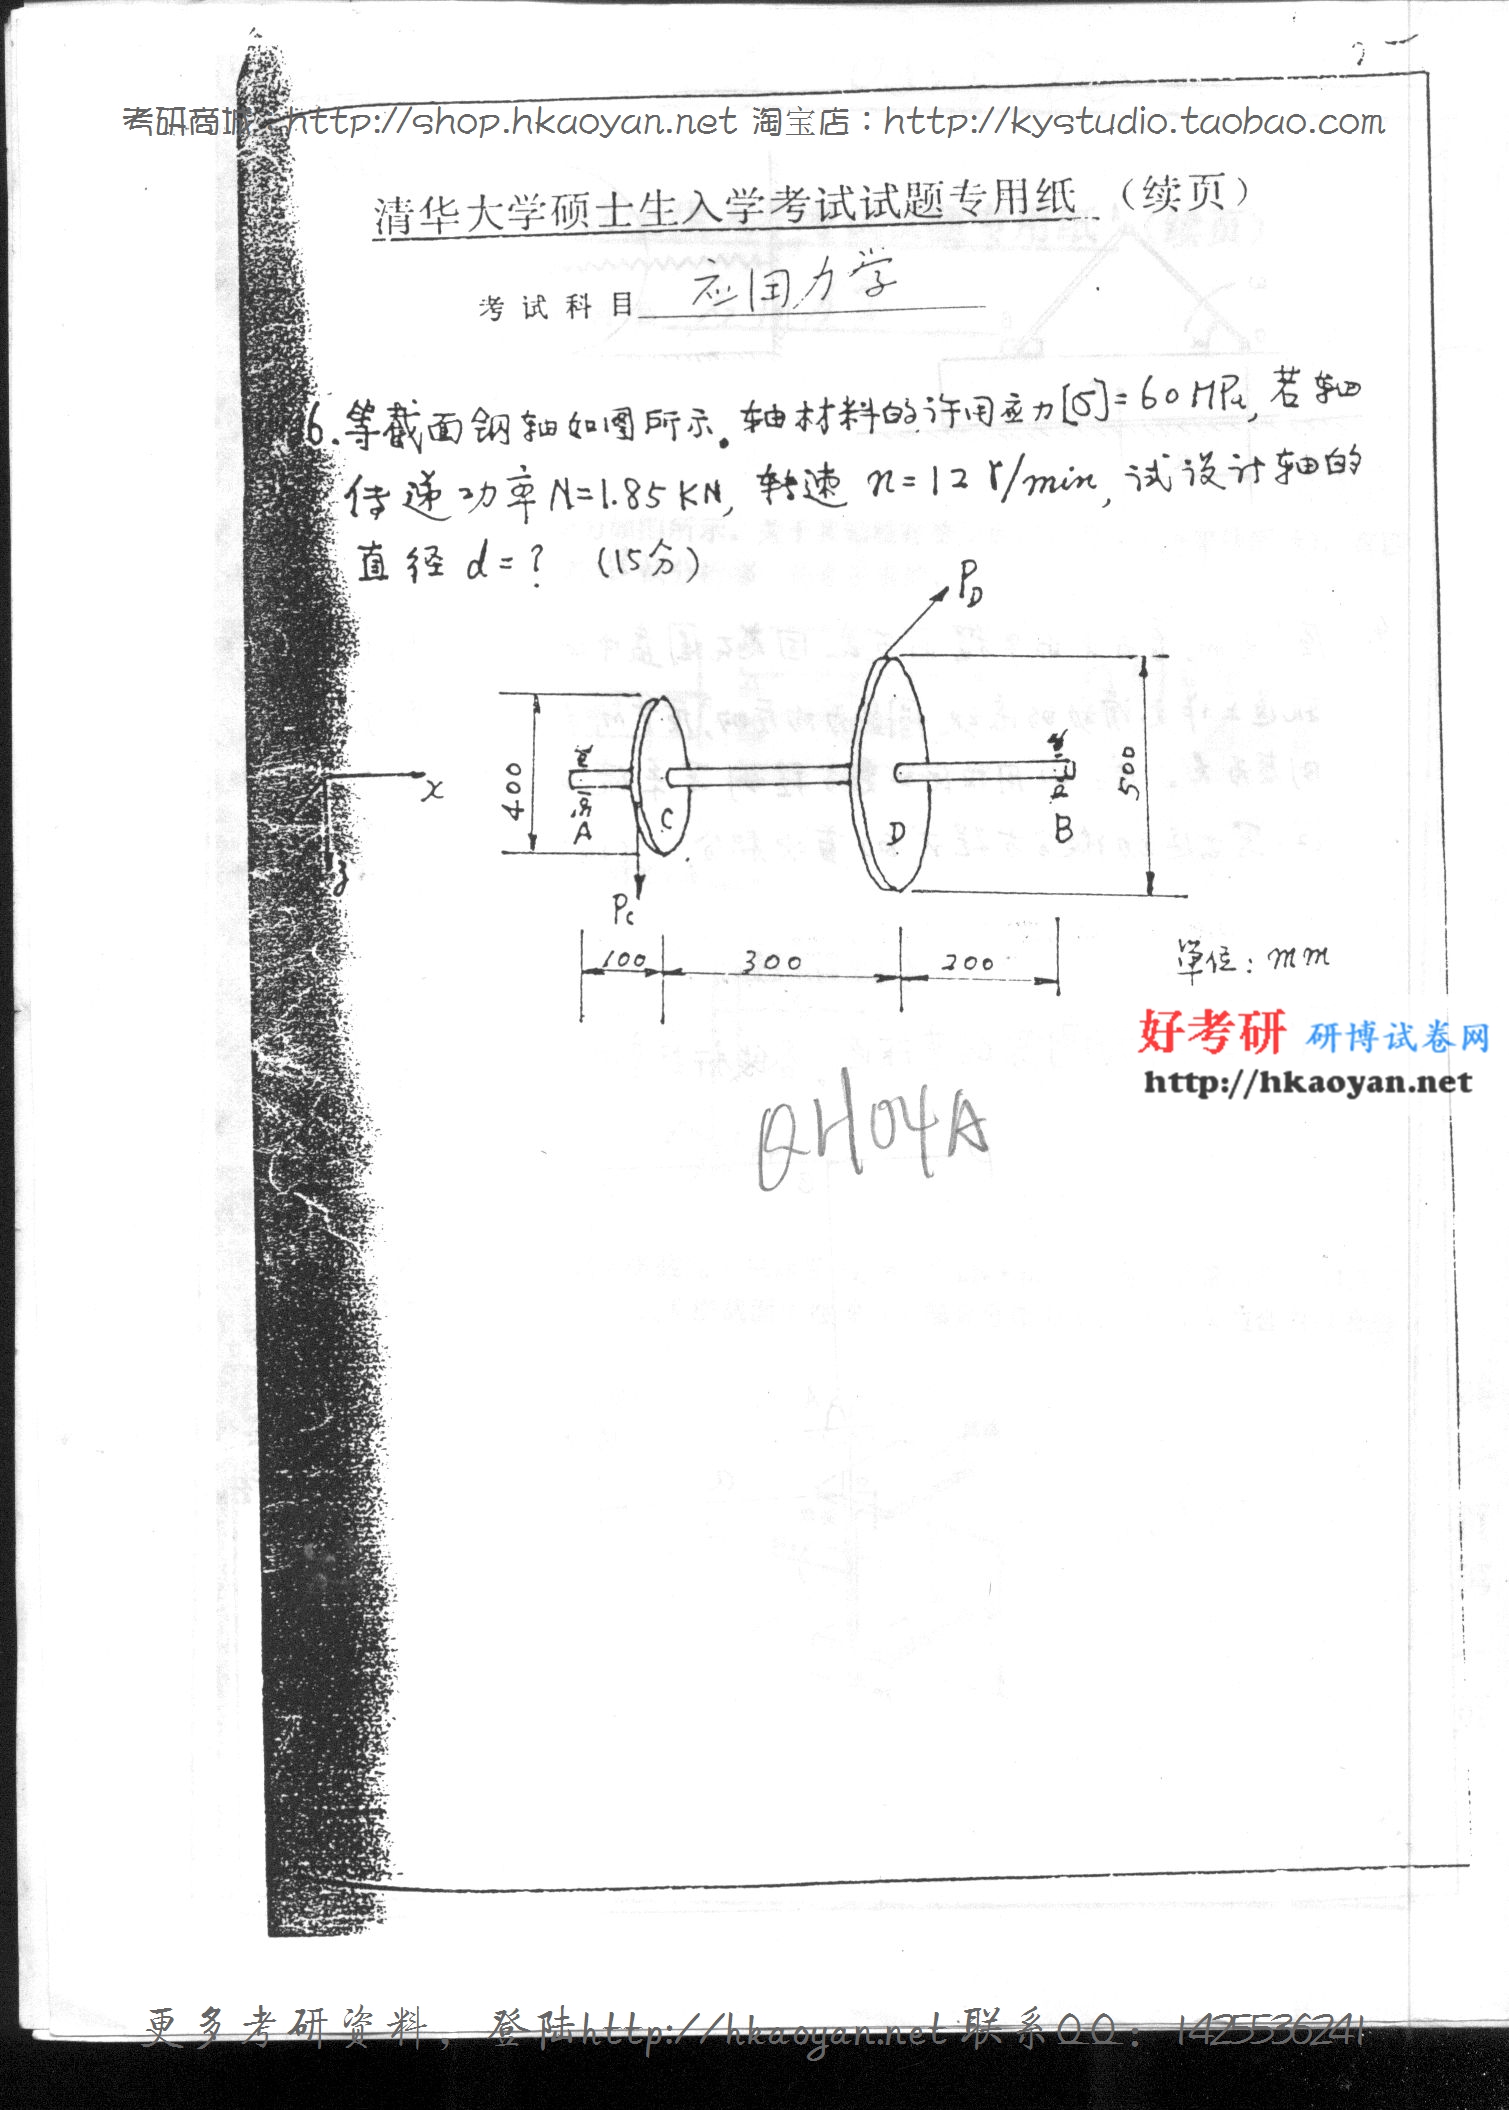 考研商城：http://shop.hkaoyan.net 淘宝店：http://kystudio.taobao.com
清华大学硕士生入学考试试题专用纸 （续页）
考试科目 应用力学
6. 等截面钢轴如图所示。轴材料的许用应力[σ]=60MPa, 若轴
传递功率N=1.85KN, 转速 n=12 r/min, 试设计轴的
直径 d=? (15分)
P_D
400
500
x
z
A
C
D
B
P_c
100
300
200
单位: mm
好考研 研博试卷网
http://hkaoyan.net
QH04A
更多考研资料，登陆http://hkaoyan.net 联系QQ：1425536241